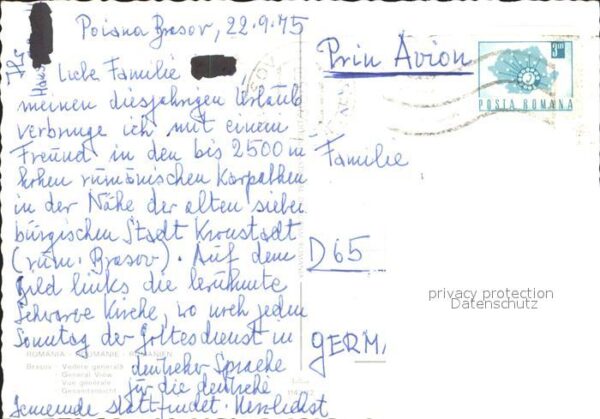 Poiana Brasov, 22.9.75
Liebe Familie
meinen diesjährigen Urlaub
verbringe ich mit einem
Freund in den bis 2500 m
hohen rumänischen Karpathen
in der Nähe der alten sieben
bürgischen Stadt Kronstadt
(rum. Brasov). Auf dem
Bild links die berühmte
Schwarze Kirche, wo noch jeden
Sonntag der Gottesdienst in
deutscher Sprache
für die deutsche
Gemeinde stattfindet. Herzlichst
ROMANIA - ROUMANIE - RUMÄNIEN
Brasov - Vedere generală
General View
Vue générale
Gesamtansicht
Prin Avion
POSTA ROMANA
Familie
D 65
GERM.
privacy protection
Datenschutz